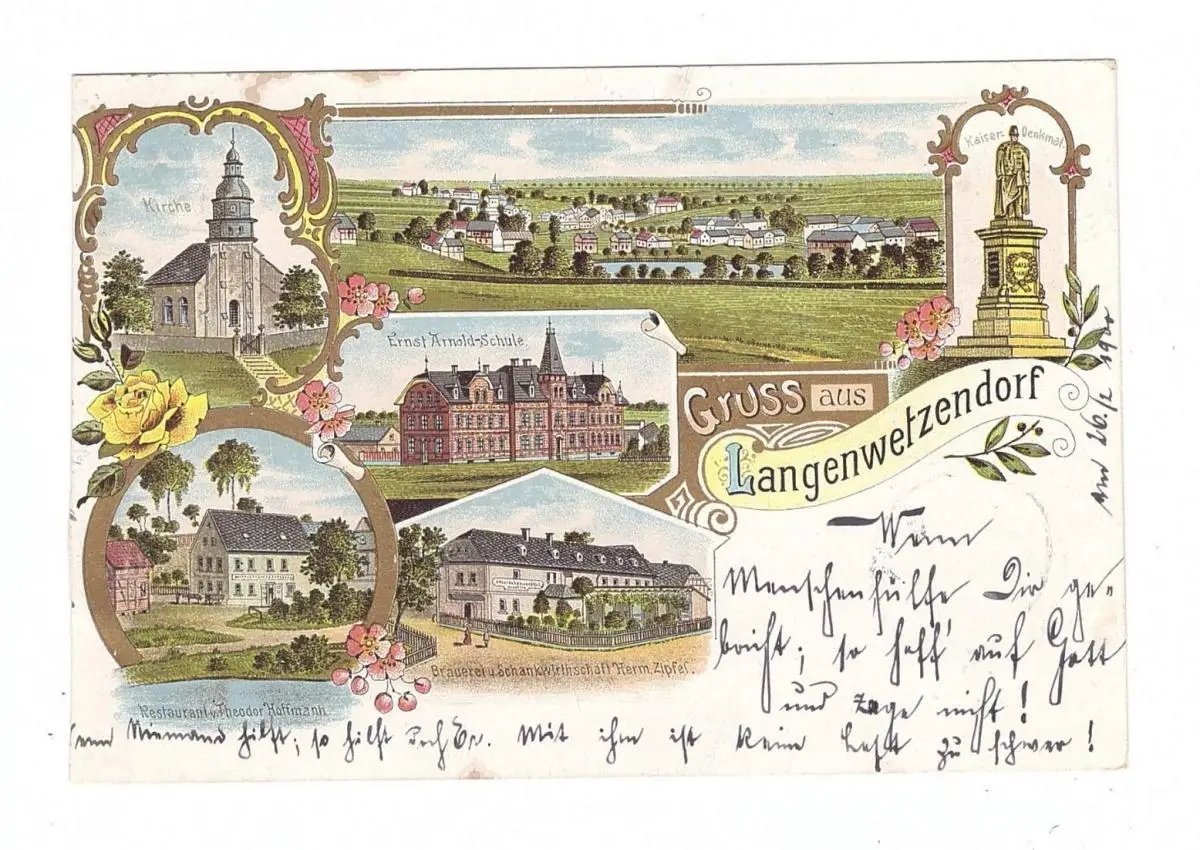 Kirche
Kaiser-Denkmal.
Ernst Arnold-Schule
Gruss aus
Langenwetzendorf
Brauerei u. Schankwirthschaft Herm. Zipfel.
Restaurant v. Theodor Hoffmann
26./2 1900
Wenn
Menschenhülfe Dir ge-
bricht; so hoff' auf Gott
und zage nicht!
Niemand hilft; so hilft doch Er. Mit ihm ist keine Last zu schwer!